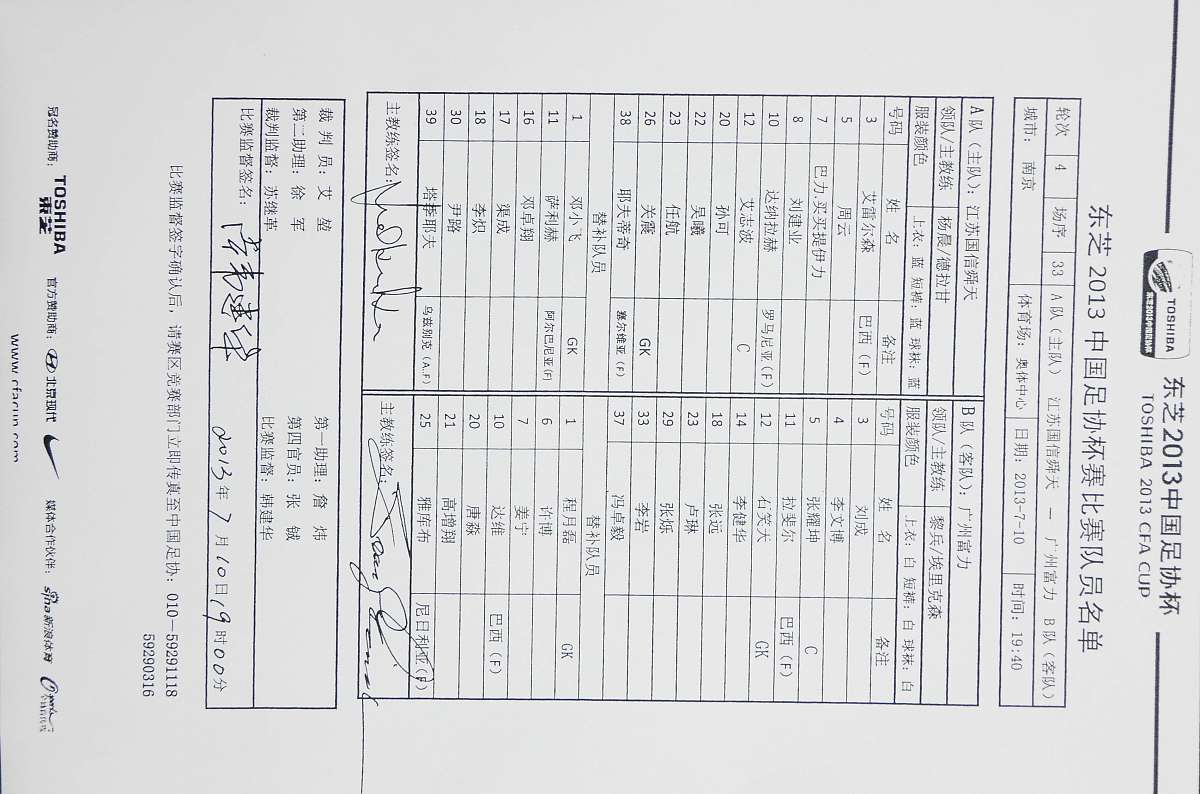 TOSHIBA
东芝2013中国足协杯
TOSHIBA 2013 CFA CUP
东芝 2013 中国足协杯赛比赛队员名单
轮次 4 场序 33 A 队（主队） 江苏国信舜天 — 广州富力 B 队（客队）
城市： 南京 体育场：奥体中心 日期：2013-7-10 时间：19:40
A 队（主队）：江苏国信舜天 B 队（客队）：广州富力
领队/主教练 杨晨/德拉甘 领队/主教练 黎兵/埃里克森
服装颜色 上衣：蓝 短裤：蓝 球袜：蓝 服装颜色 上衣：白 短裤：白 球袜：白
号码 姓 名 备注 号码 姓 名 备注
3 艾雷尔森 巴西（F） 3 刘成
5 周云 4 李文博
7 巴力.买买提伊力 5 张耀坤 C
8 刘建业 11 拉斐尔 巴西（F）
10 达纳拉赫 罗马尼亚（F） 12 石笑天 GK
12 艾志波 C 14 李健华
20 孙可 18 张远
22 吴曦 23 卢琳
23 任航 29 张烁
26 关震 GK 33 李岩
38 耶夫蒂奇 塞尔维亚（F） 37 冯卓毅
替补队员 替补队员
1 邓小飞 GK 1 程月磊 GK
11 萨利赫 阿尔巴尼亚(F) 6 许博
16 邓卓翔 7 姜宁
17 渠成 10 达维 巴西（F）
18 李炽 20 唐淼
30 尹路 21 高增翔
39 塔季耶夫 乌兹别克（A.F） 25 雅库布 尼日利亚（F）
主教练签名： 主教练签名：
裁 判 员：艾 堃 第一助理：詹 炜
第二助理：徐 军 第四官员：张 铖
裁判监督：苏继革 比赛监督：韩建华
比赛监督签名： 2013年7月10日19时00分
比赛监督签字确认后，请赛区竞赛部门立即传真至中国足协：010—59291118
59290316
冠名赞助商： TOSHIBA 东芝 官方赞助商： 北京现代 媒体合作伙伴： sina新浪体育
www.cfacup.com